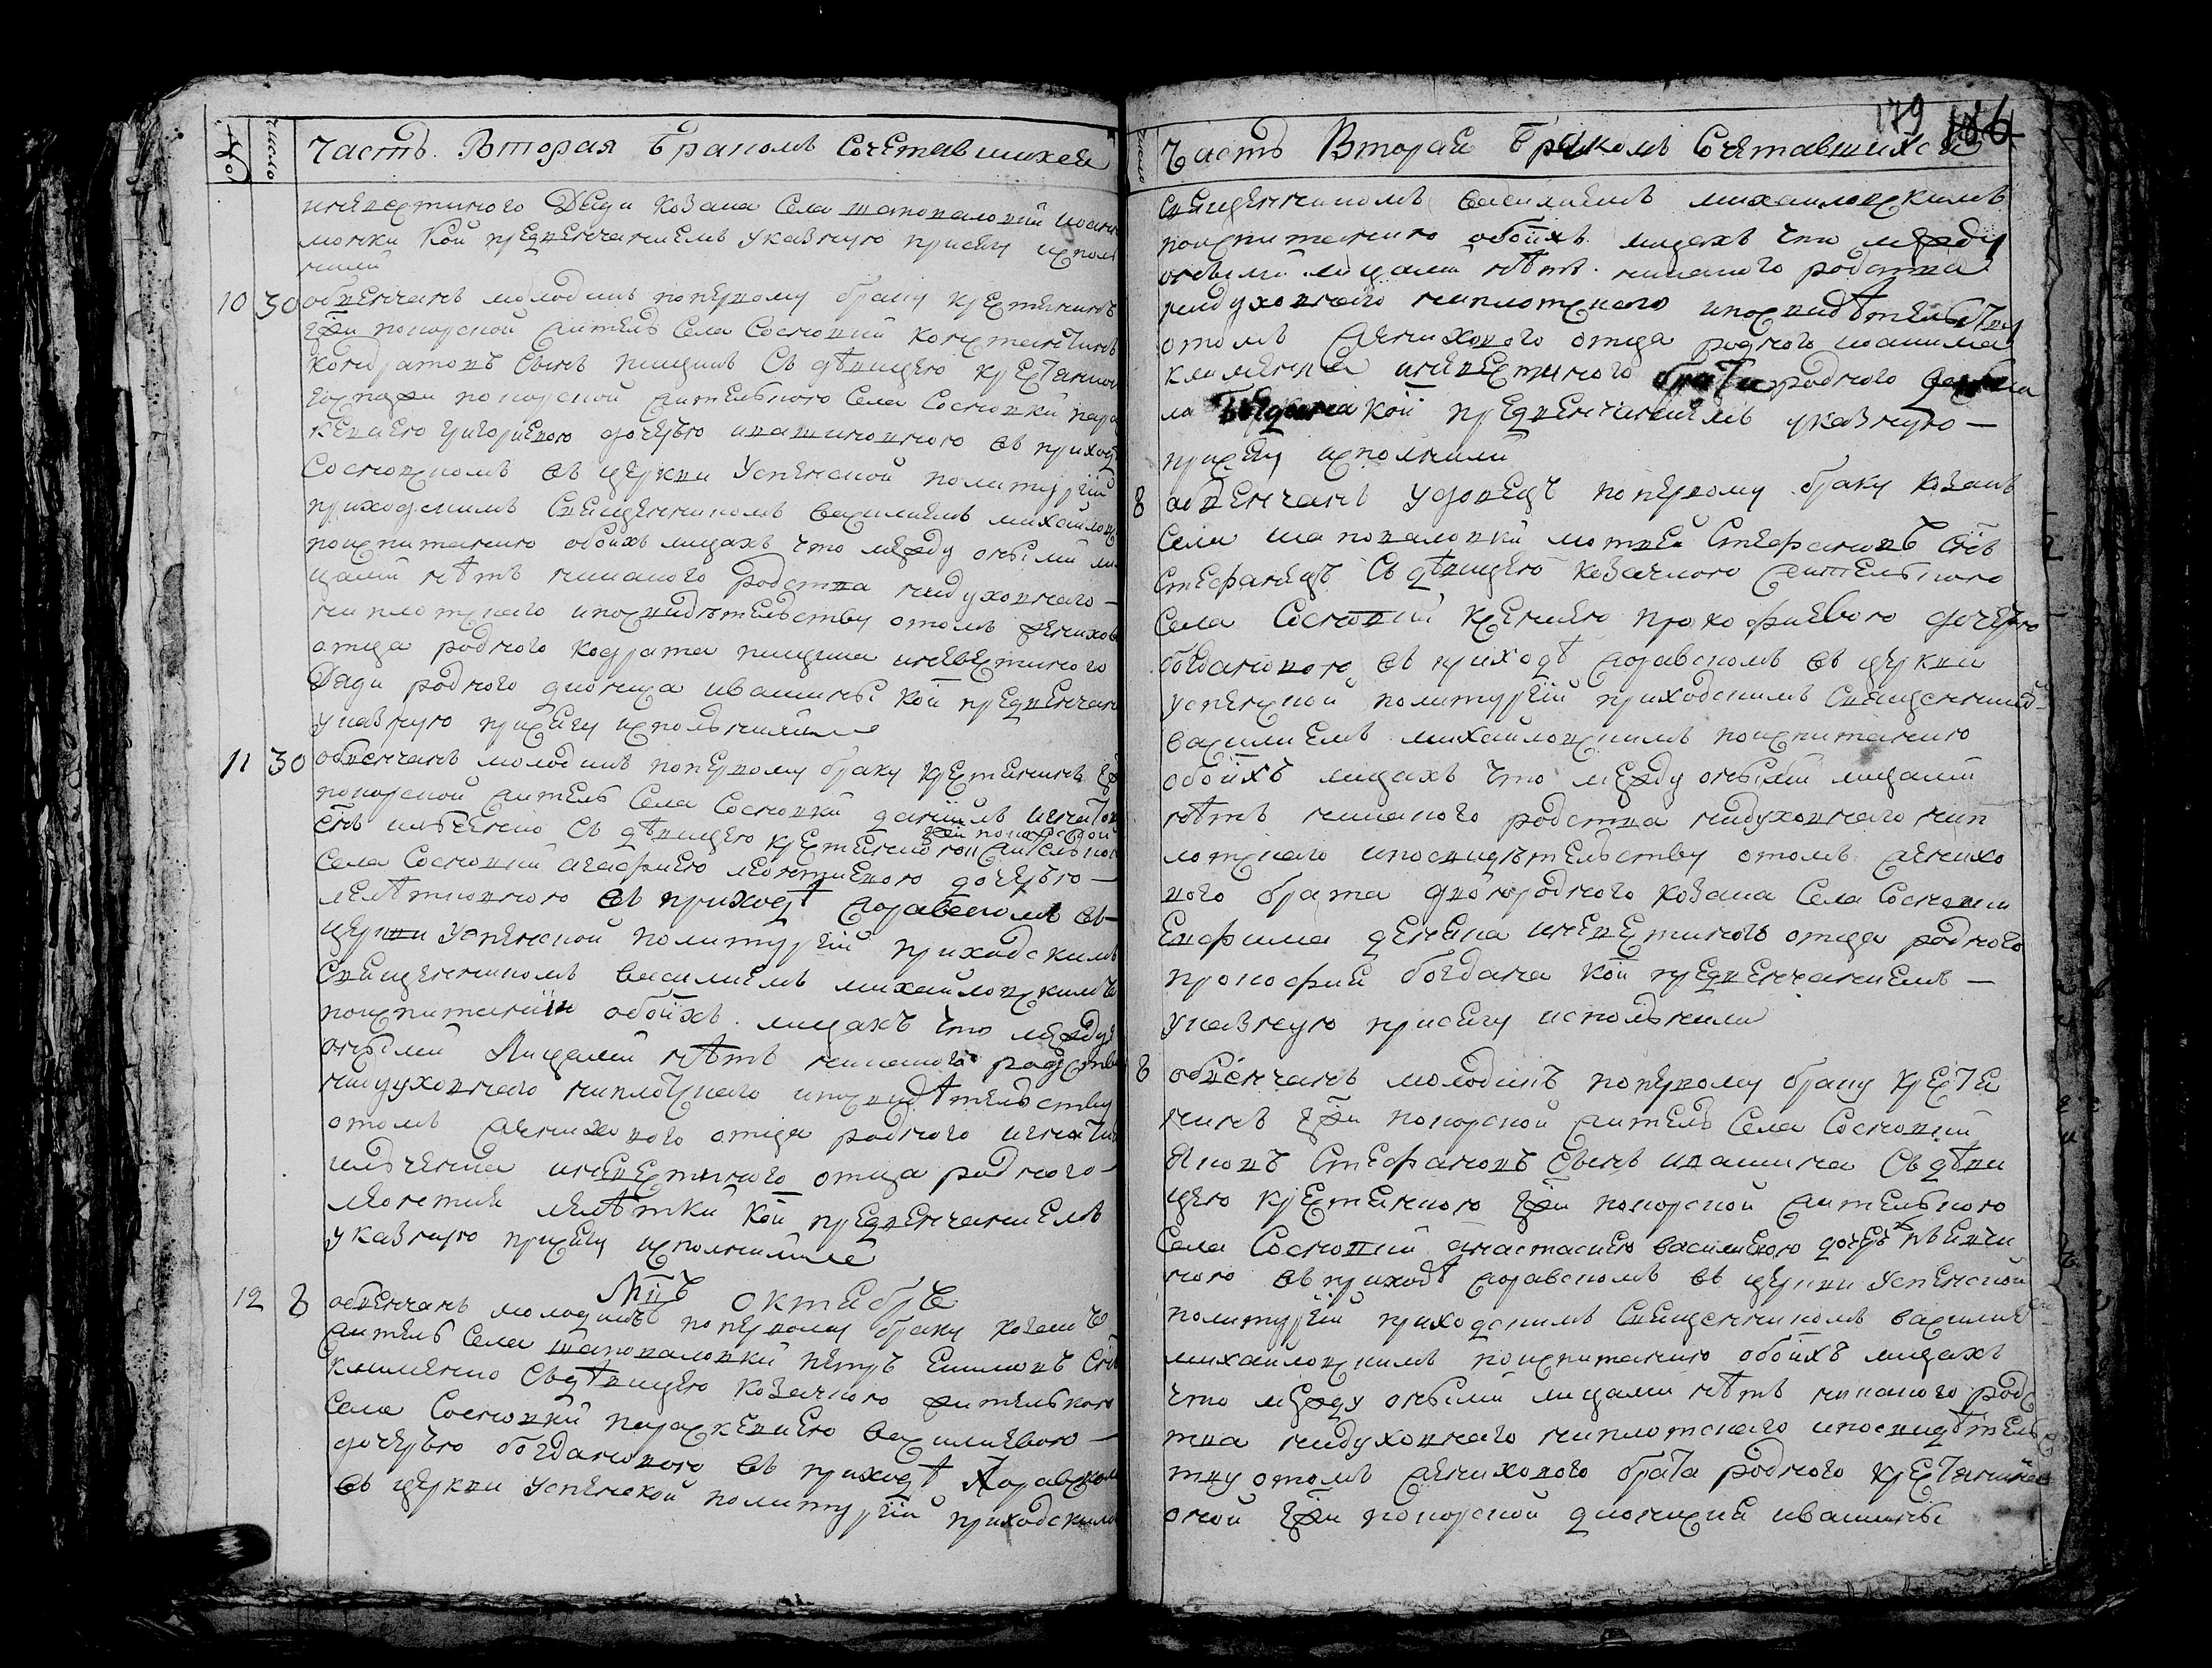 № число Часть Вторая Бракомъ Сочетавшихся
иневестиного Дяди козака Села шаповаловки иоан
мочки Кои предвенчаниемъ указную присягу испол
нили
10 30 обвенчанъ молодикъ попервому браку крестянинъ
гжи покорской житель Села Сосновки констентинъ
кондратовъ Сынъ пищикъ Съ девицею крестянкою
госпажи покорской жительною Села Сосновки пара
кевиею григориевою дочерью ивашиновною въ приход
Сосновскомъ въ церкви Успенской политургии
приходскимъ Священникомъ василиемъ михайловс
поиспитанию обоихъ лицахъ что между оными ли
цами нѣтъ никакого родства нидуховнаго
ниплотскаго ипосвидѣтельству отомъ женихов
отца родного кодрата пищика иневестиного
Дяди родного диониса ивашины кои предвенчан
указную присягу исполнили
11 30 обвенчанъ молодикъ попервому браку крестянинъ гжи
покорской житель Села Сосновки даниилъ игнатов
Снъ ильченко Съ дѣвицею крестянкою гжи покорской жительною
Села Сосновки агафиею леонтиевою дочерью
лелѣтковною въ приходѣ Журавскомъ въ
церкви Успенской политургии приходскимъ
Священникомъ василиемъ михайловскимъ
поиспитании обоихъ лицахъ что между
оными Лицами нѣтъ никакого родства
нидуховнаго ниплотскаго ипосвидѣтельству
отомъ женихового отца родного игната
ильченка иневестиного отца родного
леонтия лелѣтки кои предвенчаниемъ
указную присягу исполнили
Мцъ октябръ
12 8 обвенчанъ молодикъ попервому браку козакъ
житель Села шаповаловки петръ Снъ
клименко Съдѣвицею козачкою жительною
Села Сосновки параскевиею василиевою
дочерью богдановною въ приходѣ Журавском
въ церкви Успенской политургии приходскимъ
179
число Часть Вторая Бракомъ Сочетавшихся
Священникомъ василиемъ михаиловскимъ
поиспитанию обоихъ лицахъ что между
оными лицами нѣтъ никакого родства
нидуховнаго ниплотскаго ипосвидѣтельству
отомъ женихового отца родного
клименка иневестиного брата родного
кои предвенчаниемъ указную
присягу исполнили
8 обвенчанъ удовецъ попервому браку козакъ
Села шаповаловки мотвей Стефановъ Снъ
Стефанецъ Съ дѣвицею козачкою жительною
Села Сосновки ксениею прокофиевою дочерью
богдановною въ приходѣ журавскомъ въ церкви
успенской политургии приходскимъ Священнико
василиемъ михайловскимъ поиспитанию
обоихъ лицахъ что между оными лицами
нѣтъ никакого родства нидуховнаго нип
лотскаго ипосвидѣтельству отомъ женихо
вого брата двоюродного козака Села Сосновки
Евфима иневестиного отца родного
прокофия богдана кои предвенчаниемъ
указную присягу исполнили
8 обвенчанъ молодикъ попервому браку крестя
нинъ гжи покорской житель Села Сосновки
яковъ Стефановъ Сынъ ивашина Съ дѣви
цею крестянкою гжи покорской жительною
Села Сосновки анастасиею василиевою дочерь
ною въ приходѣ журавскомъ въ церкви Успенской
политургии приходскимъ Священникомъ василие
михаиловскимъ поиспитанию обоихъ лицахъ
что между оными лицами нѣтъ никакого родс
тва нидуховнаго ниплотскаго ипосвидѣтельс
тву отомъ женихового брата родного крестянина
оной гжи покорской дионисия ивашины